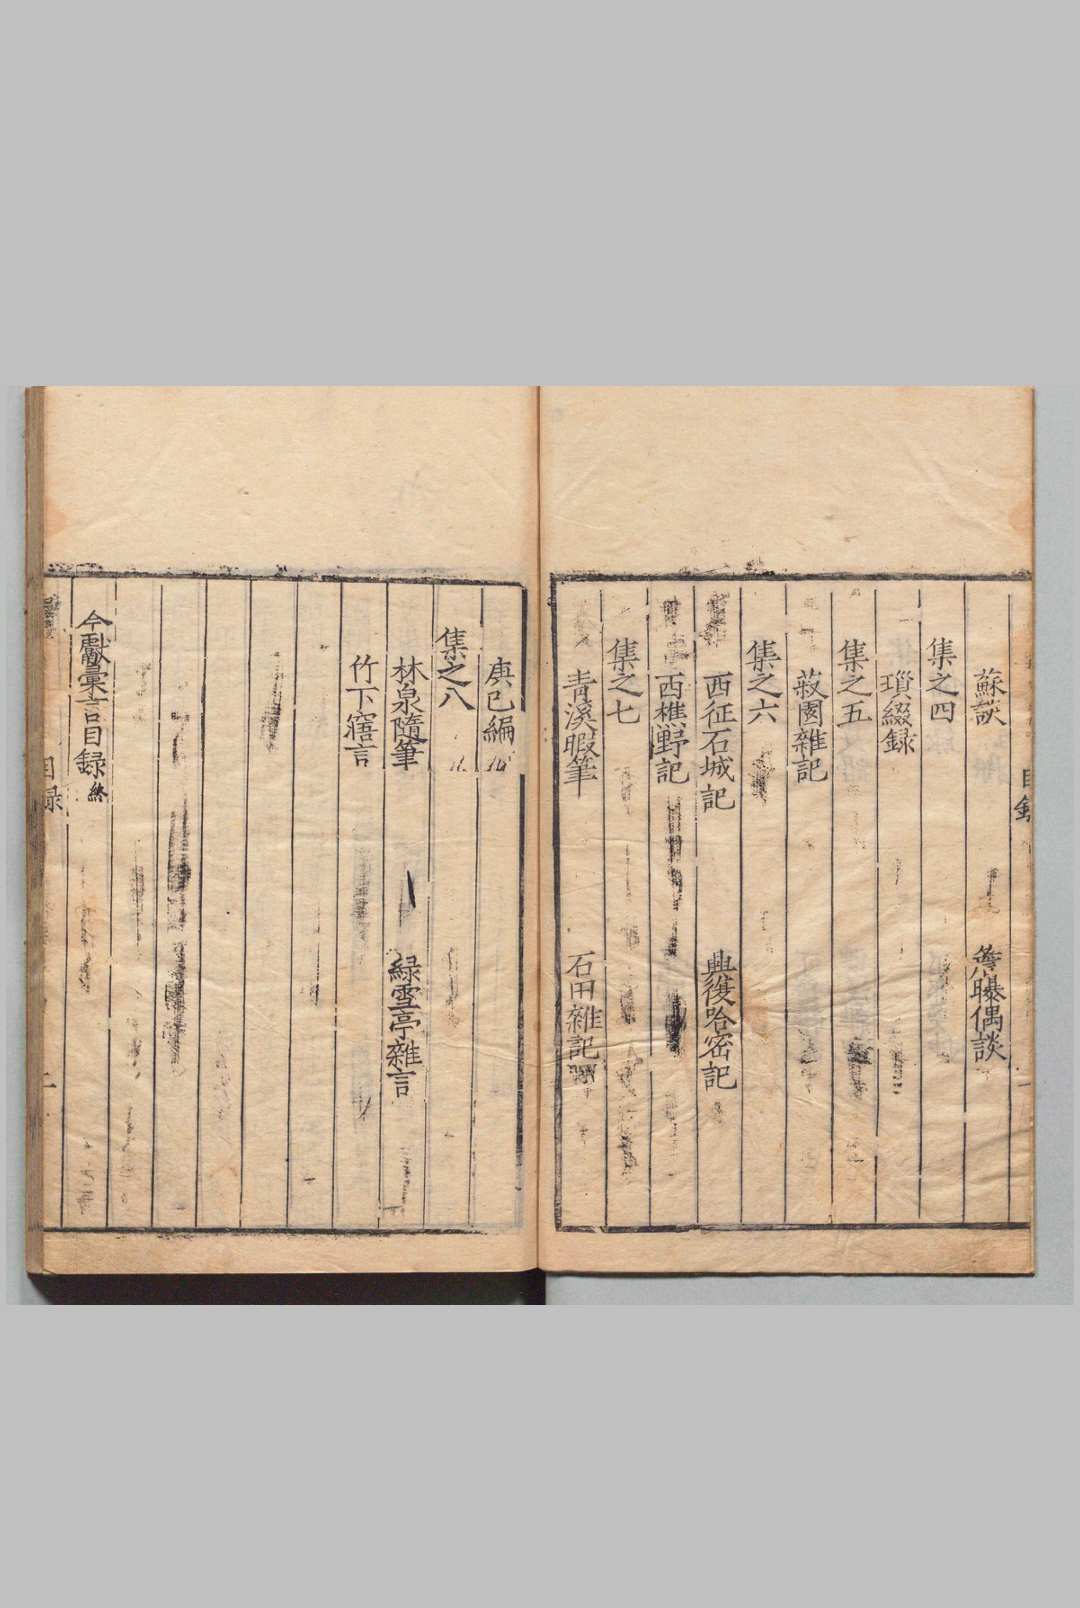 蘇談　簷曝偶談
集之四
瑣綴録
集之五
菽園雜記
集之六
西征石城記　興復哈密記
西樵野記
集之七
青溪暇筆　石田雜記
庚巳編
集之八
林泉隨筆　緑雪亭雜言
竹下寤言
今獻彙言目録終
目録